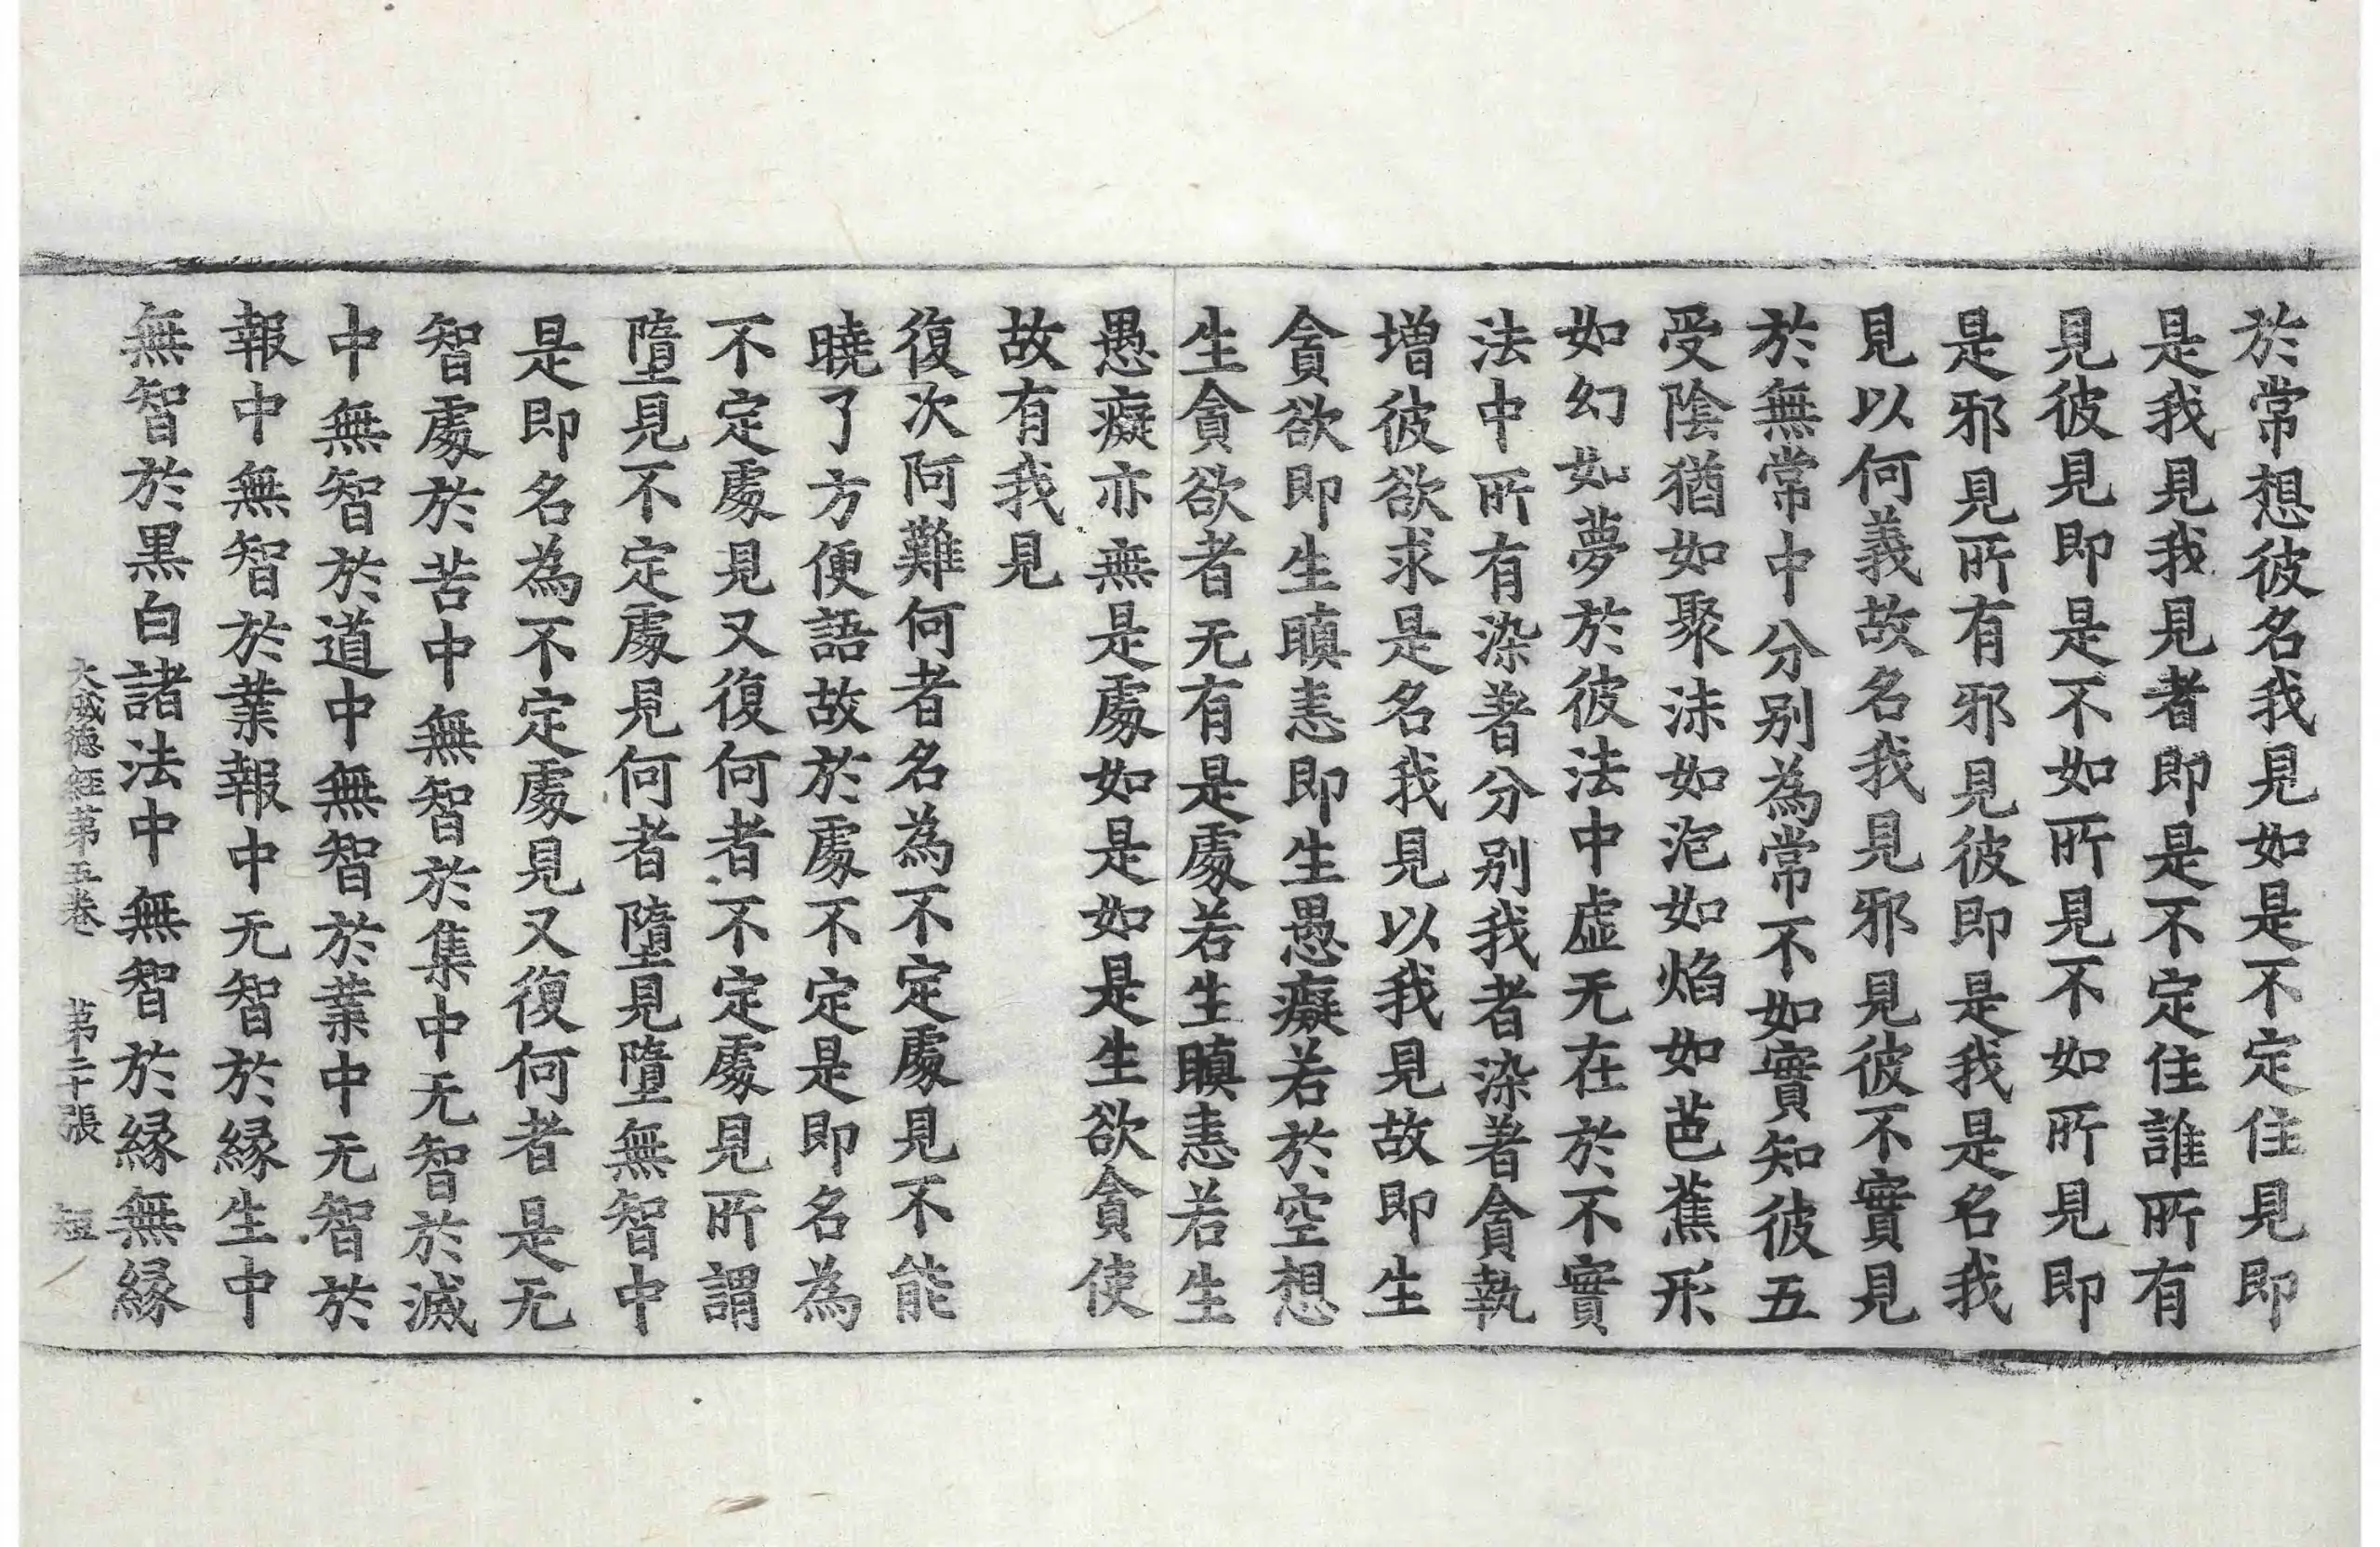 於常想彼名我見如是不定住見即
是我見我見者即是不定住誰所有
見彼見即是不如所見不如所見即
是邪見所有邪見彼即是我是名我
見以何義故名我見邪見彼不實見
於無常中分別為常不如實知彼五
受陰猶如聚沫如泡如焰如芭蕉形
如幻如夢於彼法中虛无在於不實
法中所有染著分別我者染著貪執
增彼欲求是名我見以我見故即生
貪欲即生瞋恚即生愚癡若於空想
生貪欲者无有是處若生瞋恚若生
愚癡亦無是處如是如是生欲貪使
故有我見
復次阿難何者名為不定處見不能
曉了方便語故於處不定是即名為
不定處見又復何者不定處見所謂
墮見不定處見何者墮見墮無智中
是即名為不定處見又復何者是无
智處於苦中無智於集中无智於滅
中無智於道中無智於業中无智於
報中無智於業報中无智於緣生中
無智於黑白諸法中無智於緣無緣
大威德經第五卷 第二十張 短